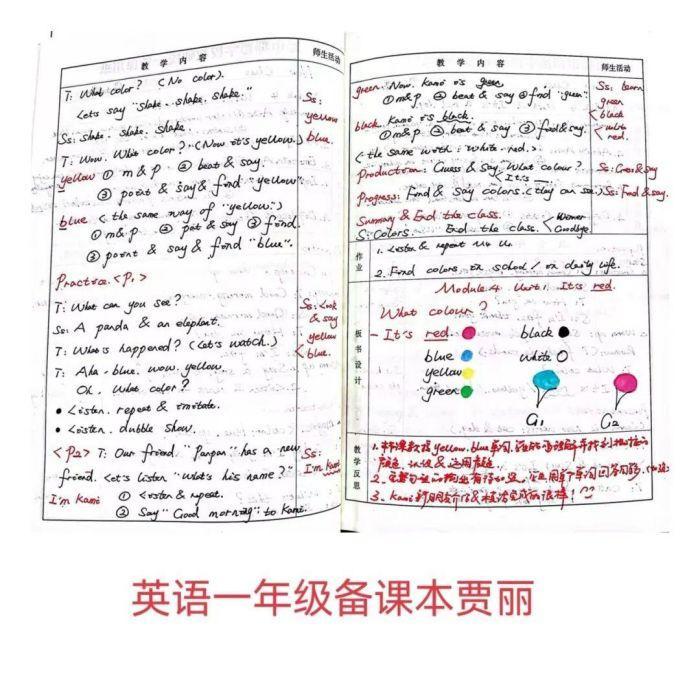 教 学 内 容
师生活动
T: What color? (No color).
Let's say "shake. shake. shake."
Ss: shake. shake. shake.
T: Wow. What color? (Now it's yellow.)
yellow ① m & p. ② beat & say.
③ point & say & find "yellow".
blue < the same way of "yellow".>
① m & p. ② pat & say ③ find.
③ point & say & find "blue".
Practice. <P1>
T: What can you see?
Ss: A panda & an elephant.
T: What's happened? (Let's watch.)
T: Aha. blue. wow. yellow.
Oh. What color?
• Listen. repeat & imitate.
• Listen. dubble show.
<P2> T: Our friend "Panpan" has a new
friend. Let's listen "What's his name?"
I'm Kami ① Listen & repeat.
② Say "Good morning" to Kami.
Ss:
yellow
blue.
Ss: Look
& say
yellow
< blue.
Ss:
I'm Kami
教 学 内 容
师生活动
green. Now. Kami is green
① m&p ② beat & say ③ find "green".
black. Kami is black.
① m&p. ② beat & say. ③ find & say.
< the same with: white. red.>
Production: Guess & Say "What colour?
< It's
Progress: Find & say colors. (they can see.)
Summary & End the class.
S: Colors. End the class. < Winner
Goodbye.
Ss: learn
green
< black
white
red.
Ss: Guess & say
Ss: Find & say.
作业
1. Listen & repeat
2. Find colors in school / in daily life.
板书设计
Module 4 Unit 1 It's red.
What colour?
- It's red.
black
blue
white
yellow
green
G1
G2
教学反思
1. 本课教授 yellow. blue 单词.
颜色. 认识 & 运用
2.
3. Kami 新朋友介绍 &
英语一年级备课本贾丽